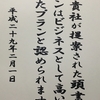 貴社が提案された頭書
ンはビジネスとして高い
たプランと認められます
平成二十九年二月一日